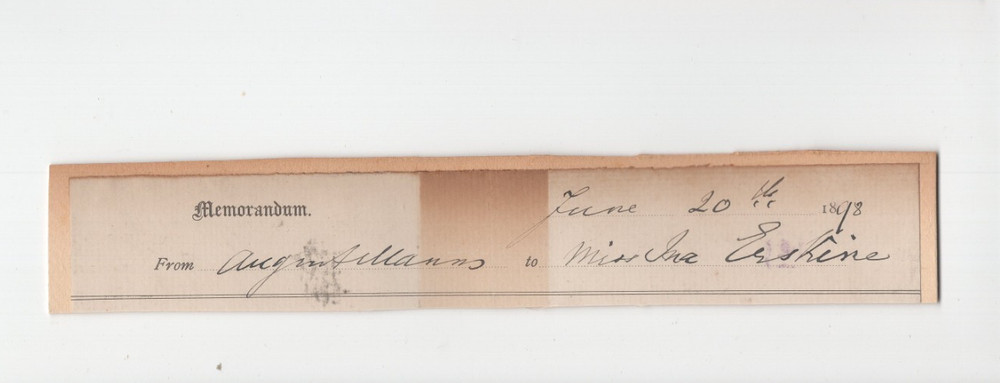 Memorandum.
June 20th 1898
From August Manns to Miss Ina Erskine